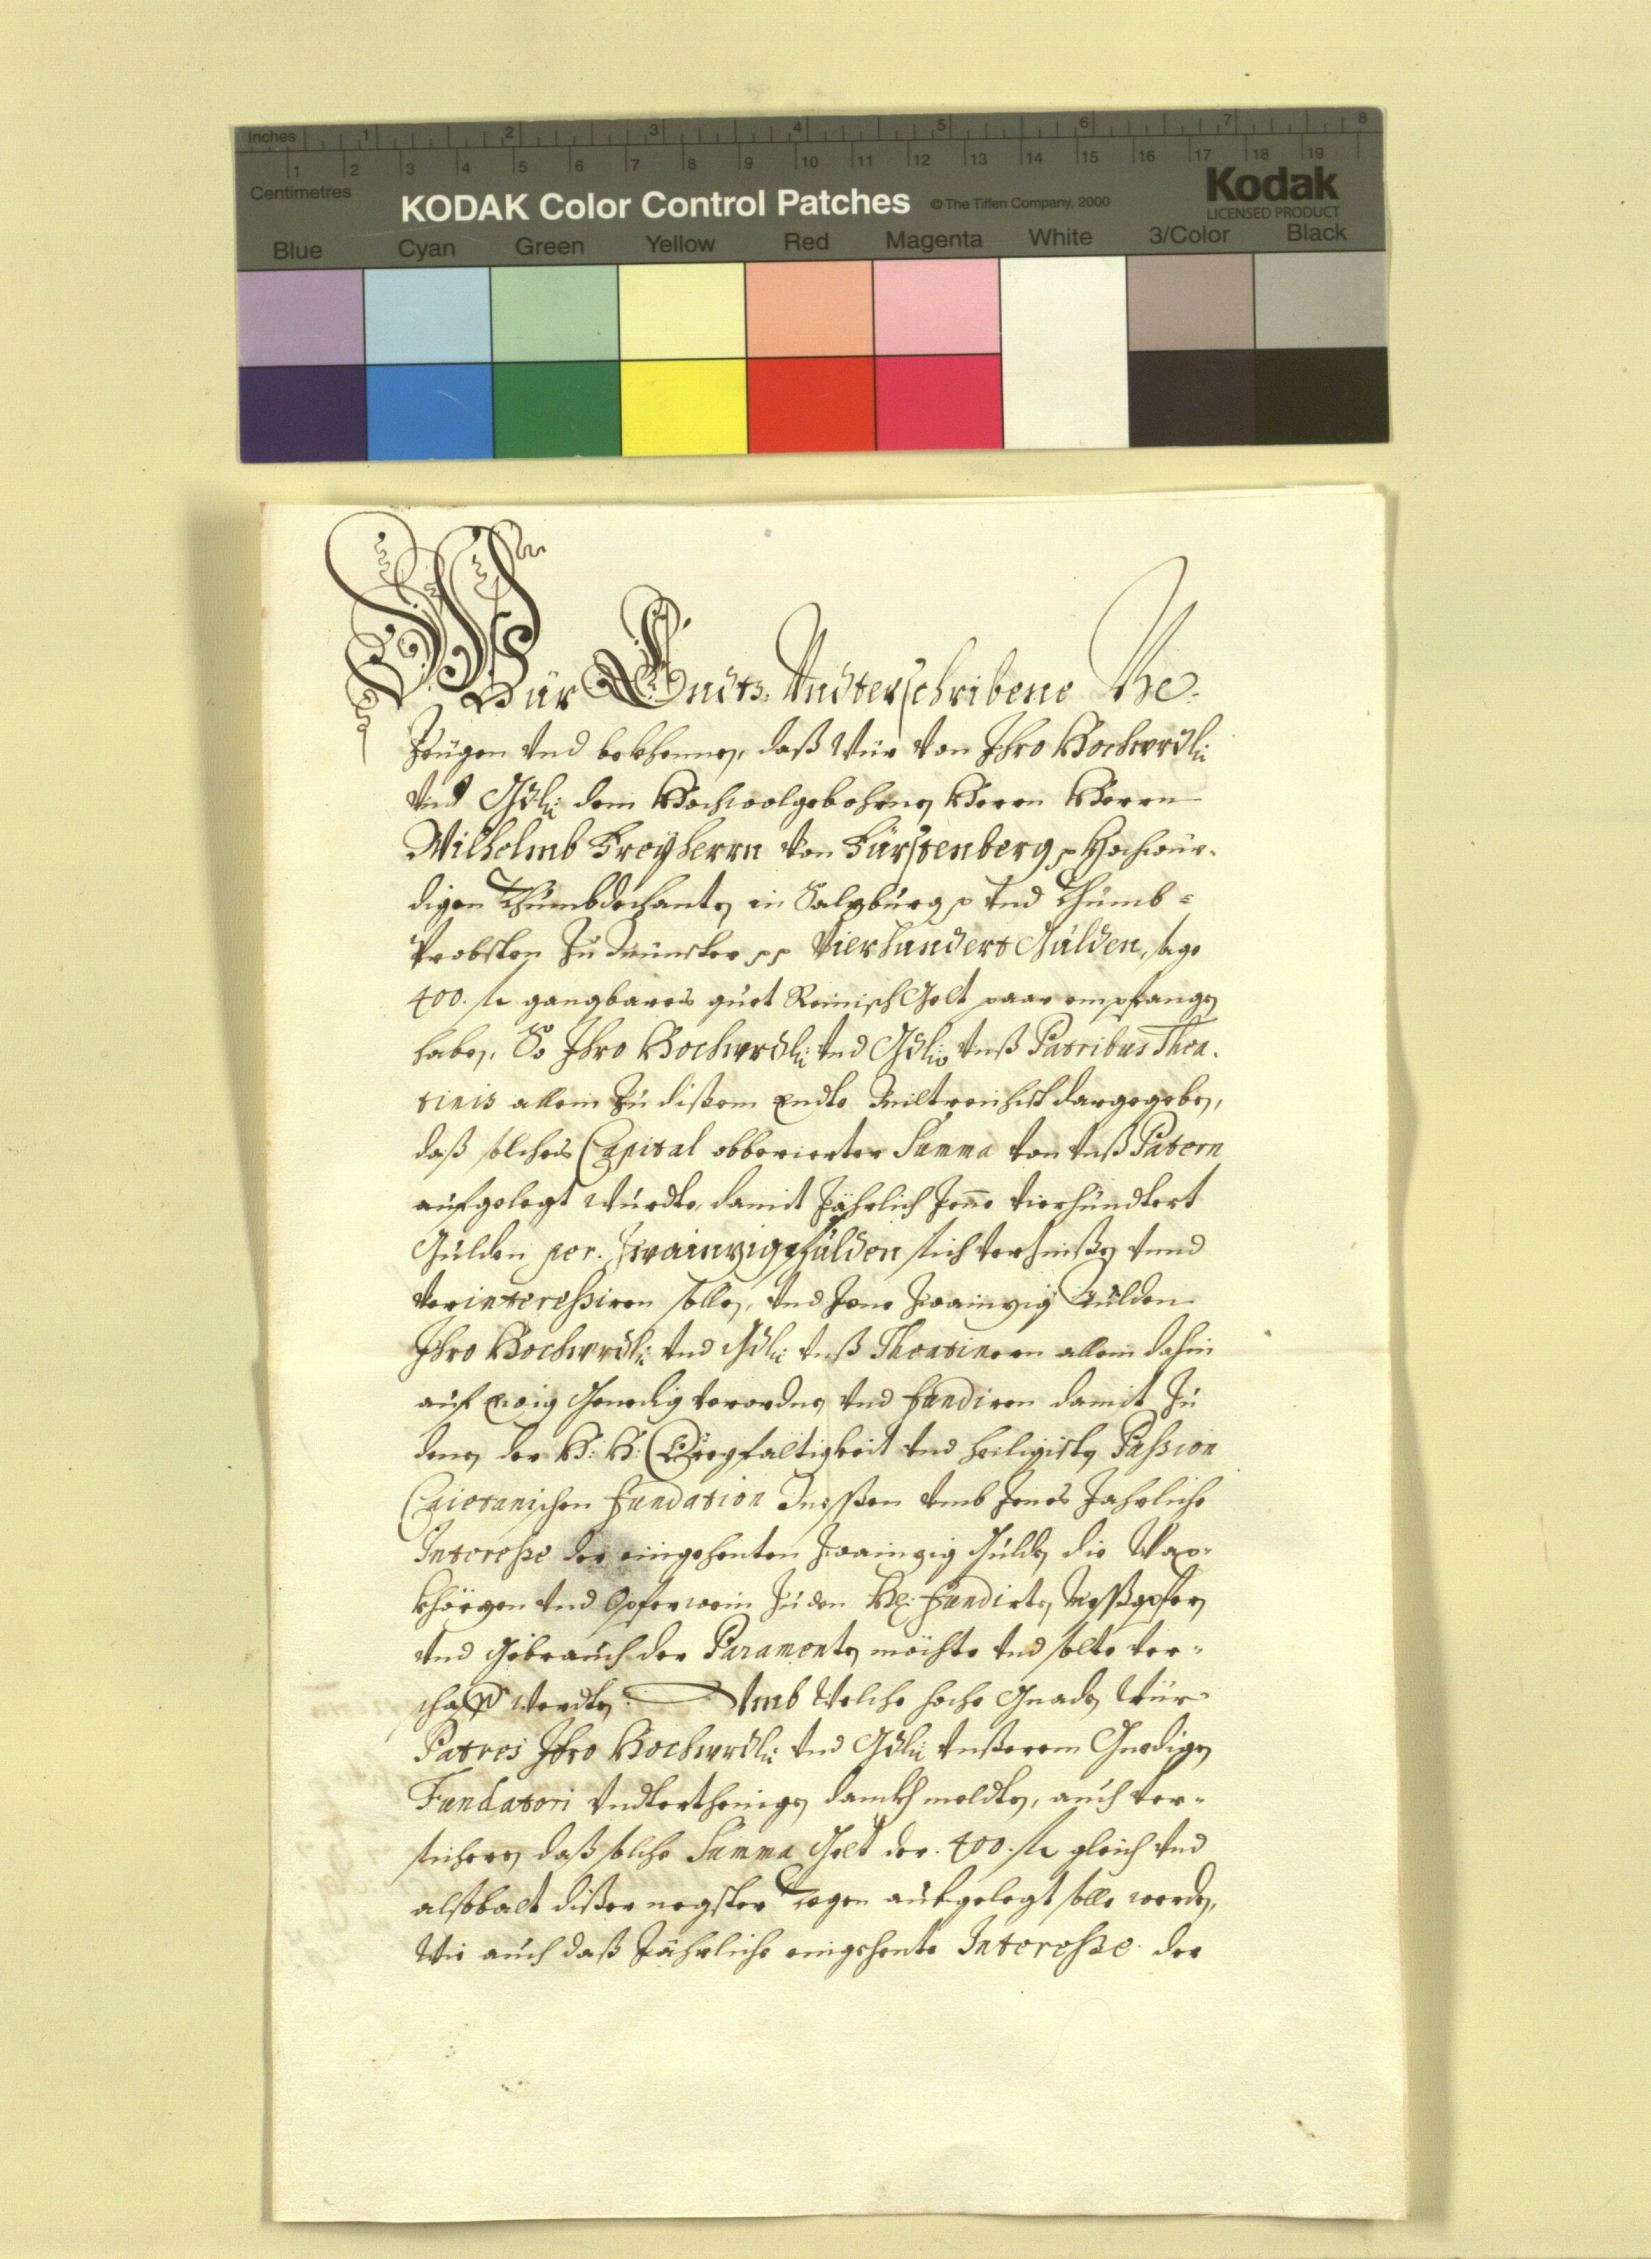 Inches 1 2 3 4 5 6 7 8
1 2 3 4 5 6 7 8 9 10 11 12 13 14 15 16 17 18 19
Centimetres
KODAK Color Control Patches © The Tiffen Company, 2000
Kodak
LICENSED PRODUCT
Blue Cyan Green Yellow Red Magenta White 3/Color Black
Wür Endts: Undterschribene Be-
zeügen vnd bekhennen, daß Wür von Ihro Hochwrdl:
vnd Gdl: dem Hochwolgebohrnen Herrn Herrn
Wilhelmb Freyherrn von Fürstenberg p Hochwür-
digen Thumbdechanten in Salzburg p vnd Thumb=
Probsten zu Münster pp Vierhundert Gulden, sage
400. fl gangbares guet Reinisch Gelt paar empfangen
haben, So Ihro Hochwrdl: vnd Gdl: vnß Patribus Thea-
tinis allein zu dißem Endte dargegeben,
daß solches Capital obberierter Summa von vnß Patern
aufgelegt wurdte, damit Jährlich Jene vierhundtert
Gulden per. Zwainzig Gulden sich verzinßen vnnd
verinteressiren sollen, vnd Jene zwainzig Gulden
Ihro Hochwrdl: vnd Gdl: vnß Theatinern allein dahin
auf Ewig Genedig verordnen vnd fundiren damit zu
denen der H: H: Dreyfaltigkeit vnd heiligisten Passion
Caietanischen Fundation Messen vmb Jenes Jahrliche
Interesse der eingehenten zwainzig Gulden die Wax-
khörzen vnd Opferwein zu den Hl: Fundirten Meßopfer
vnd Gebrauch der Paramenten möchte vnd solte ver-
schafft werdten. Vmb Welche hoche Gnaden Wür
Patres Ihro Hochwrdl: vnd Gdl: vnßerem Gnedigen
Fundatori vndterthenigen danckh meldten, auch ver-
sicheren daß solche Summa Gelt der. 400. fl gleich vnd
alsobalt dißer negsten Tegen aufgelegt solle werden,
Wie auch daß Jährliche eingehente Interesse der